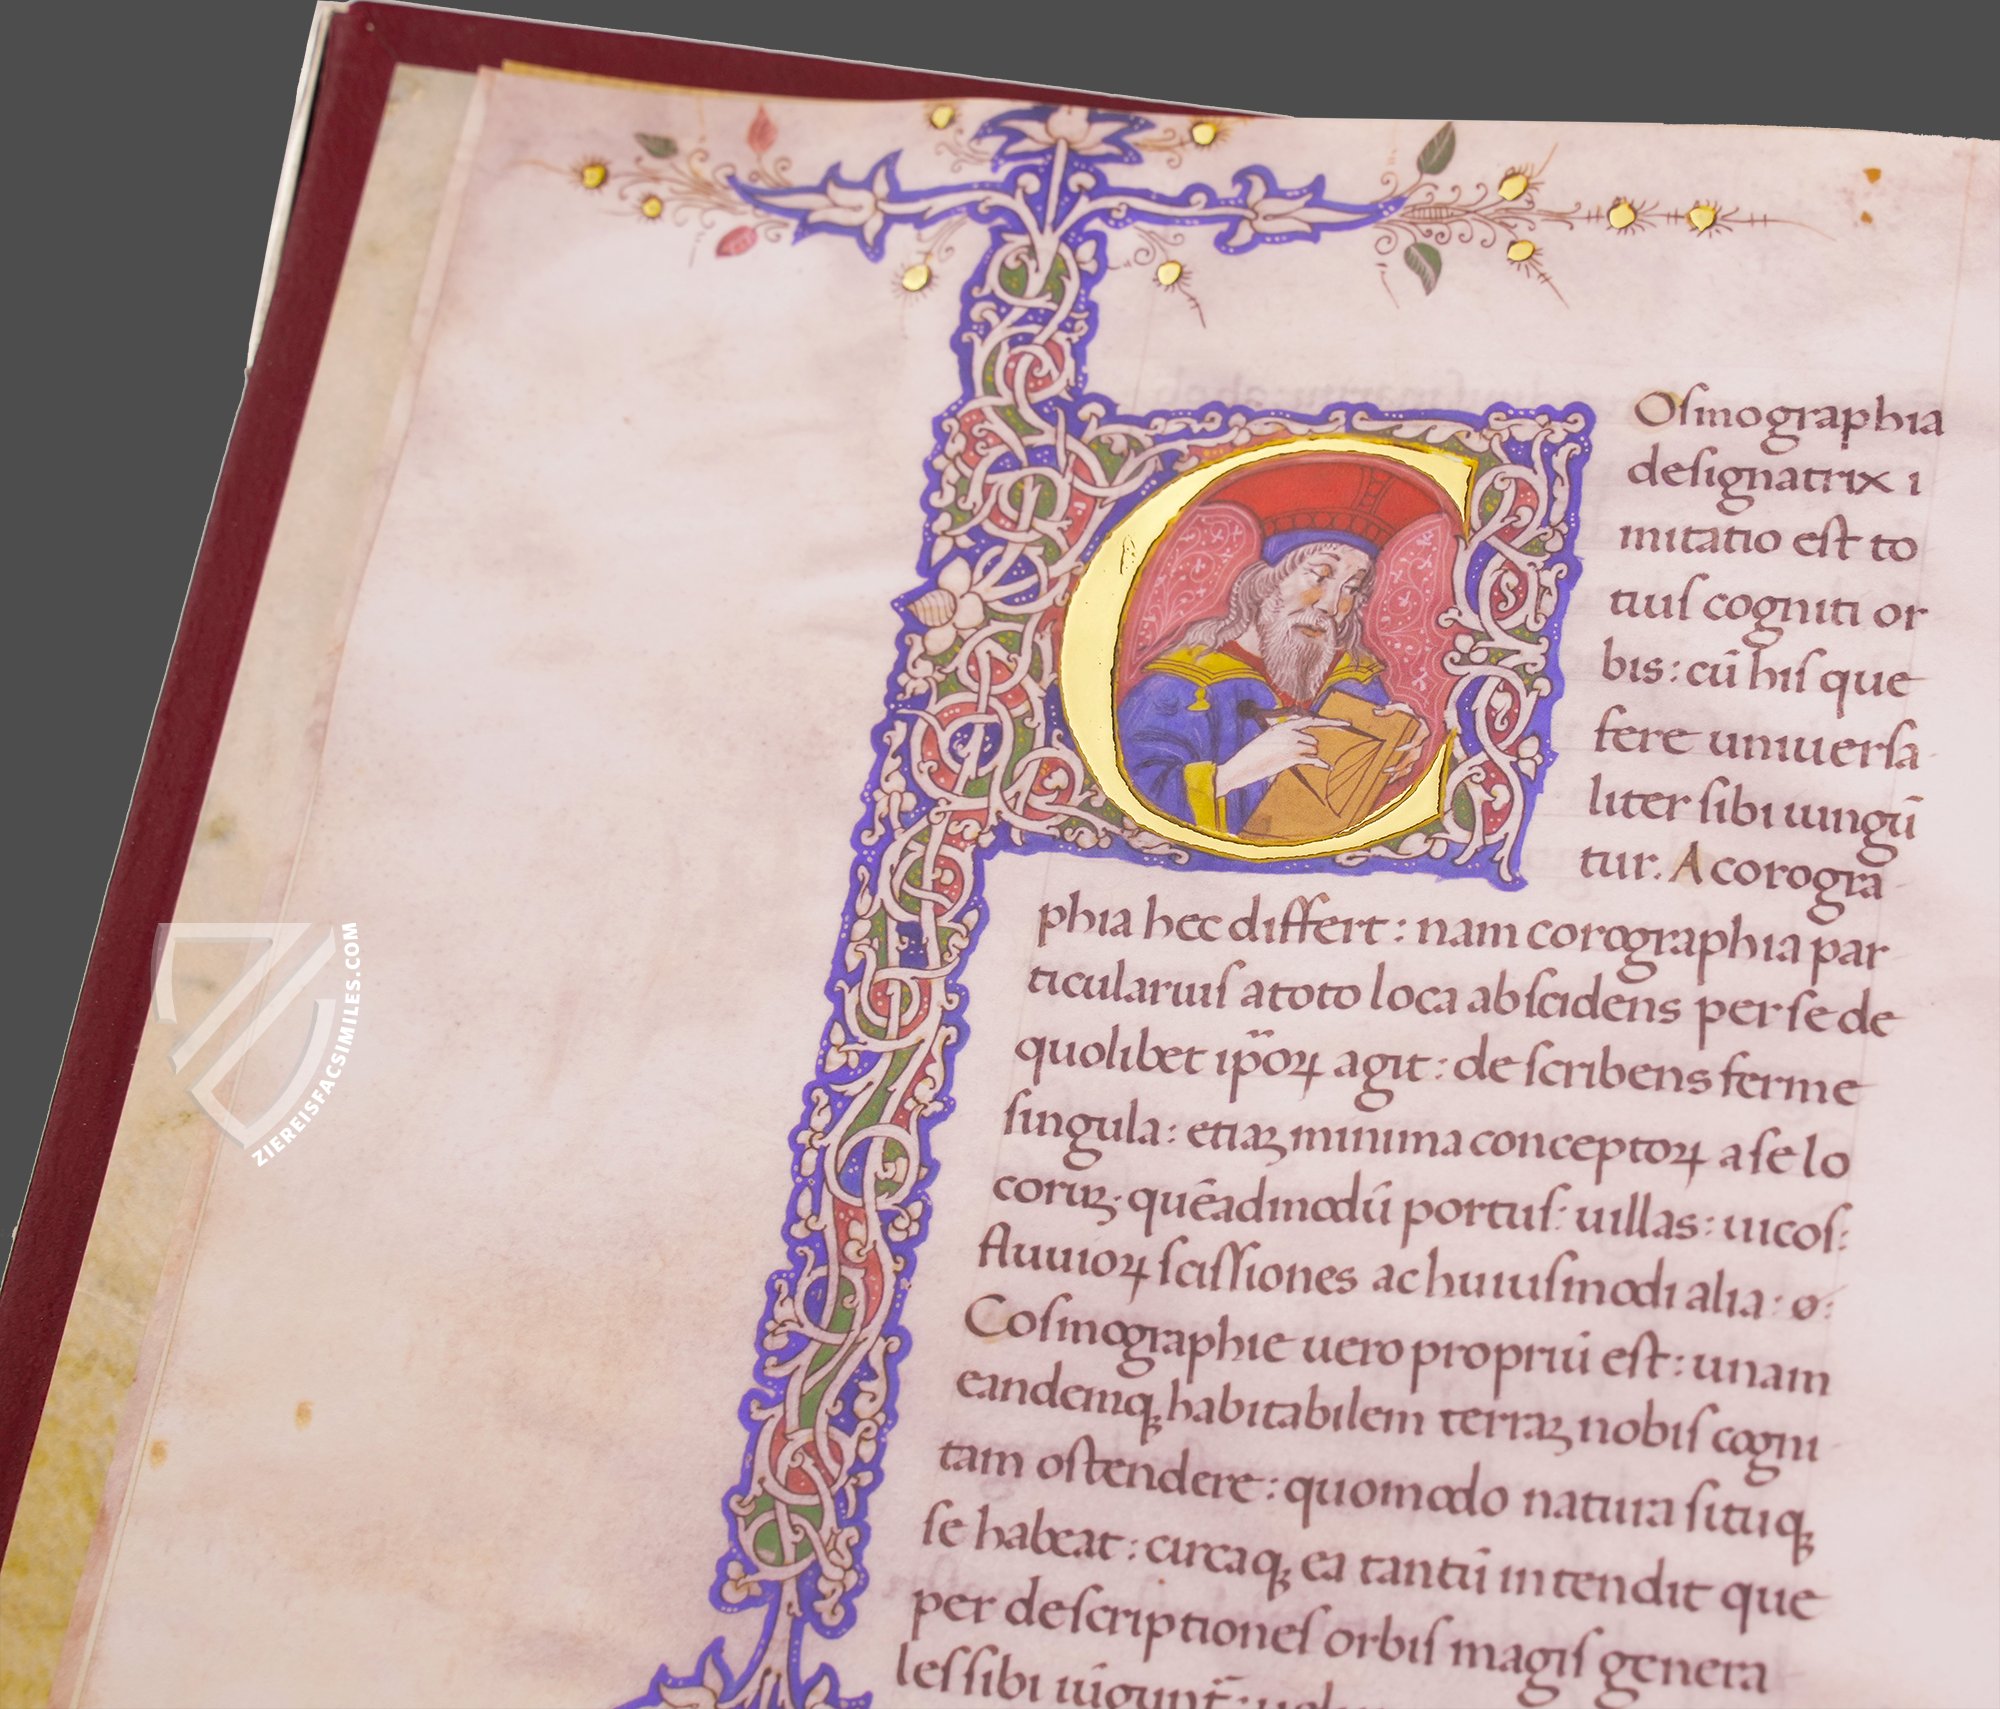 COſmographia
deſignatrix i
mitatio eſt to
tiuſ cogniti or
bis: cū hiſ que
fere uniuerſa
liter ſibi iungū
tur. A corogra
phia hec differt: nam corographia par
ticulariuſ a toto loca abſcidens per ſe de
quolibet ip̄oꝝ agit: deſcribens ferme
ſingula: etiaꝫ minima conceptoꝝ a ſe lo
coruꝫ. quēadmodū portuſ: uillas: uicoſ:
fluuioꝝ ſciſſiones ac huiuſmodi alia: ø:
Coſmographie uero propriū eſt: unam
eandemqꝫ habitabilem terraꝫ nobiſ cogni
tam oſtendere: quomodo natura ſituqꝫ
ſe habeat: circaqꝫ ea tantū intendit que
per deſcriptioneſ orbiſ magiſ genera
leſ ſibi iūgunt̄:
ZIEREISFACSIMILES.COM